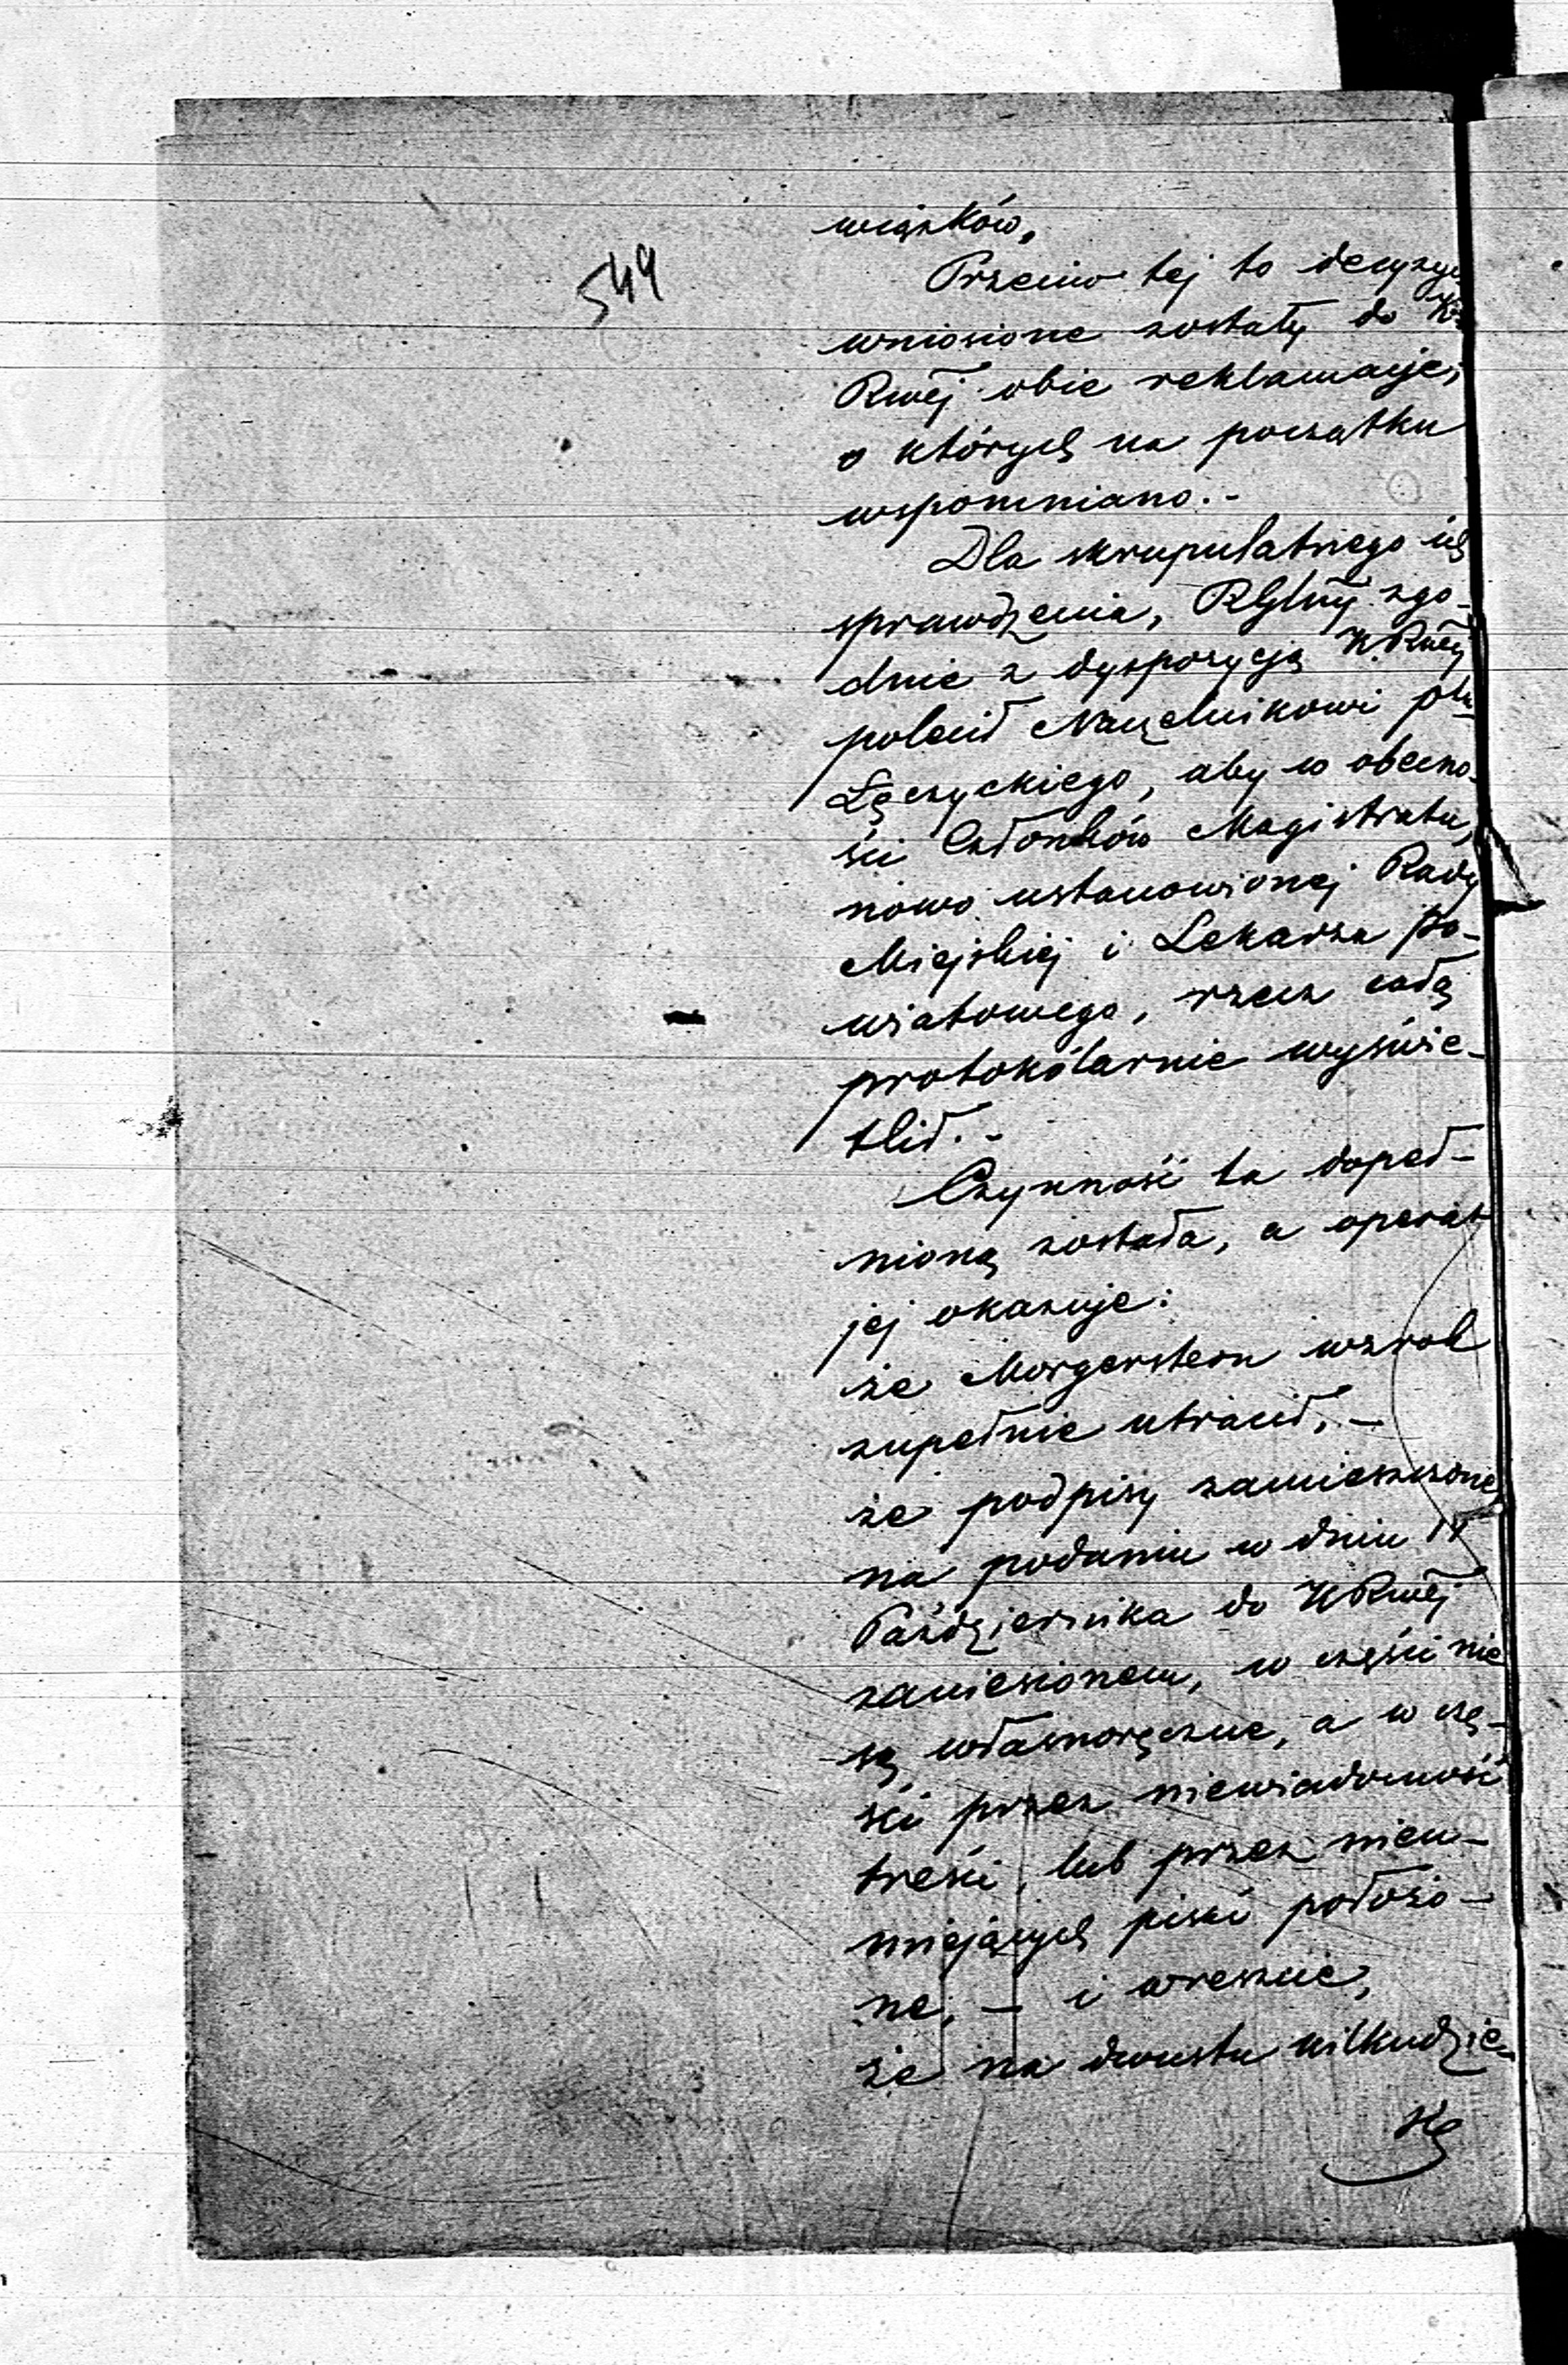 549
wiązków.
Przeciw tej to decyzyi
wniosione zostały do K
Rwéj obie reklamacje,
o których na początku
wspomniano.-
Dla skrupulatnego ich
sprawdzenia, RGlny zgo-
dnie z dyspozycją KRwéj
polecił Naczelnikowi ptu
Łęczyckiego, aby w obecno-
ści Członków Magistratu,
nowo ustanowionej Rady
Miejskiej i Lekarza po-
wiatowego, rzecz całą
protokólarnie wyświe-
tlił.-
Czynność ta dopeł-
nioną została, a operat
jej okazuje:
że Morgenstern wzrok
zupełnie utracił, -
że podpisy zamieszczone
na podaniu w dniu
Października do KRwéj
zaniesionem, w części nie
są własnoręczne, a w czę-
ści przez niewiadomość
treści, lub przez nieu-
miejących pisać położo-
ne, - i wreszcie,
że na dwustu kilkudzie-